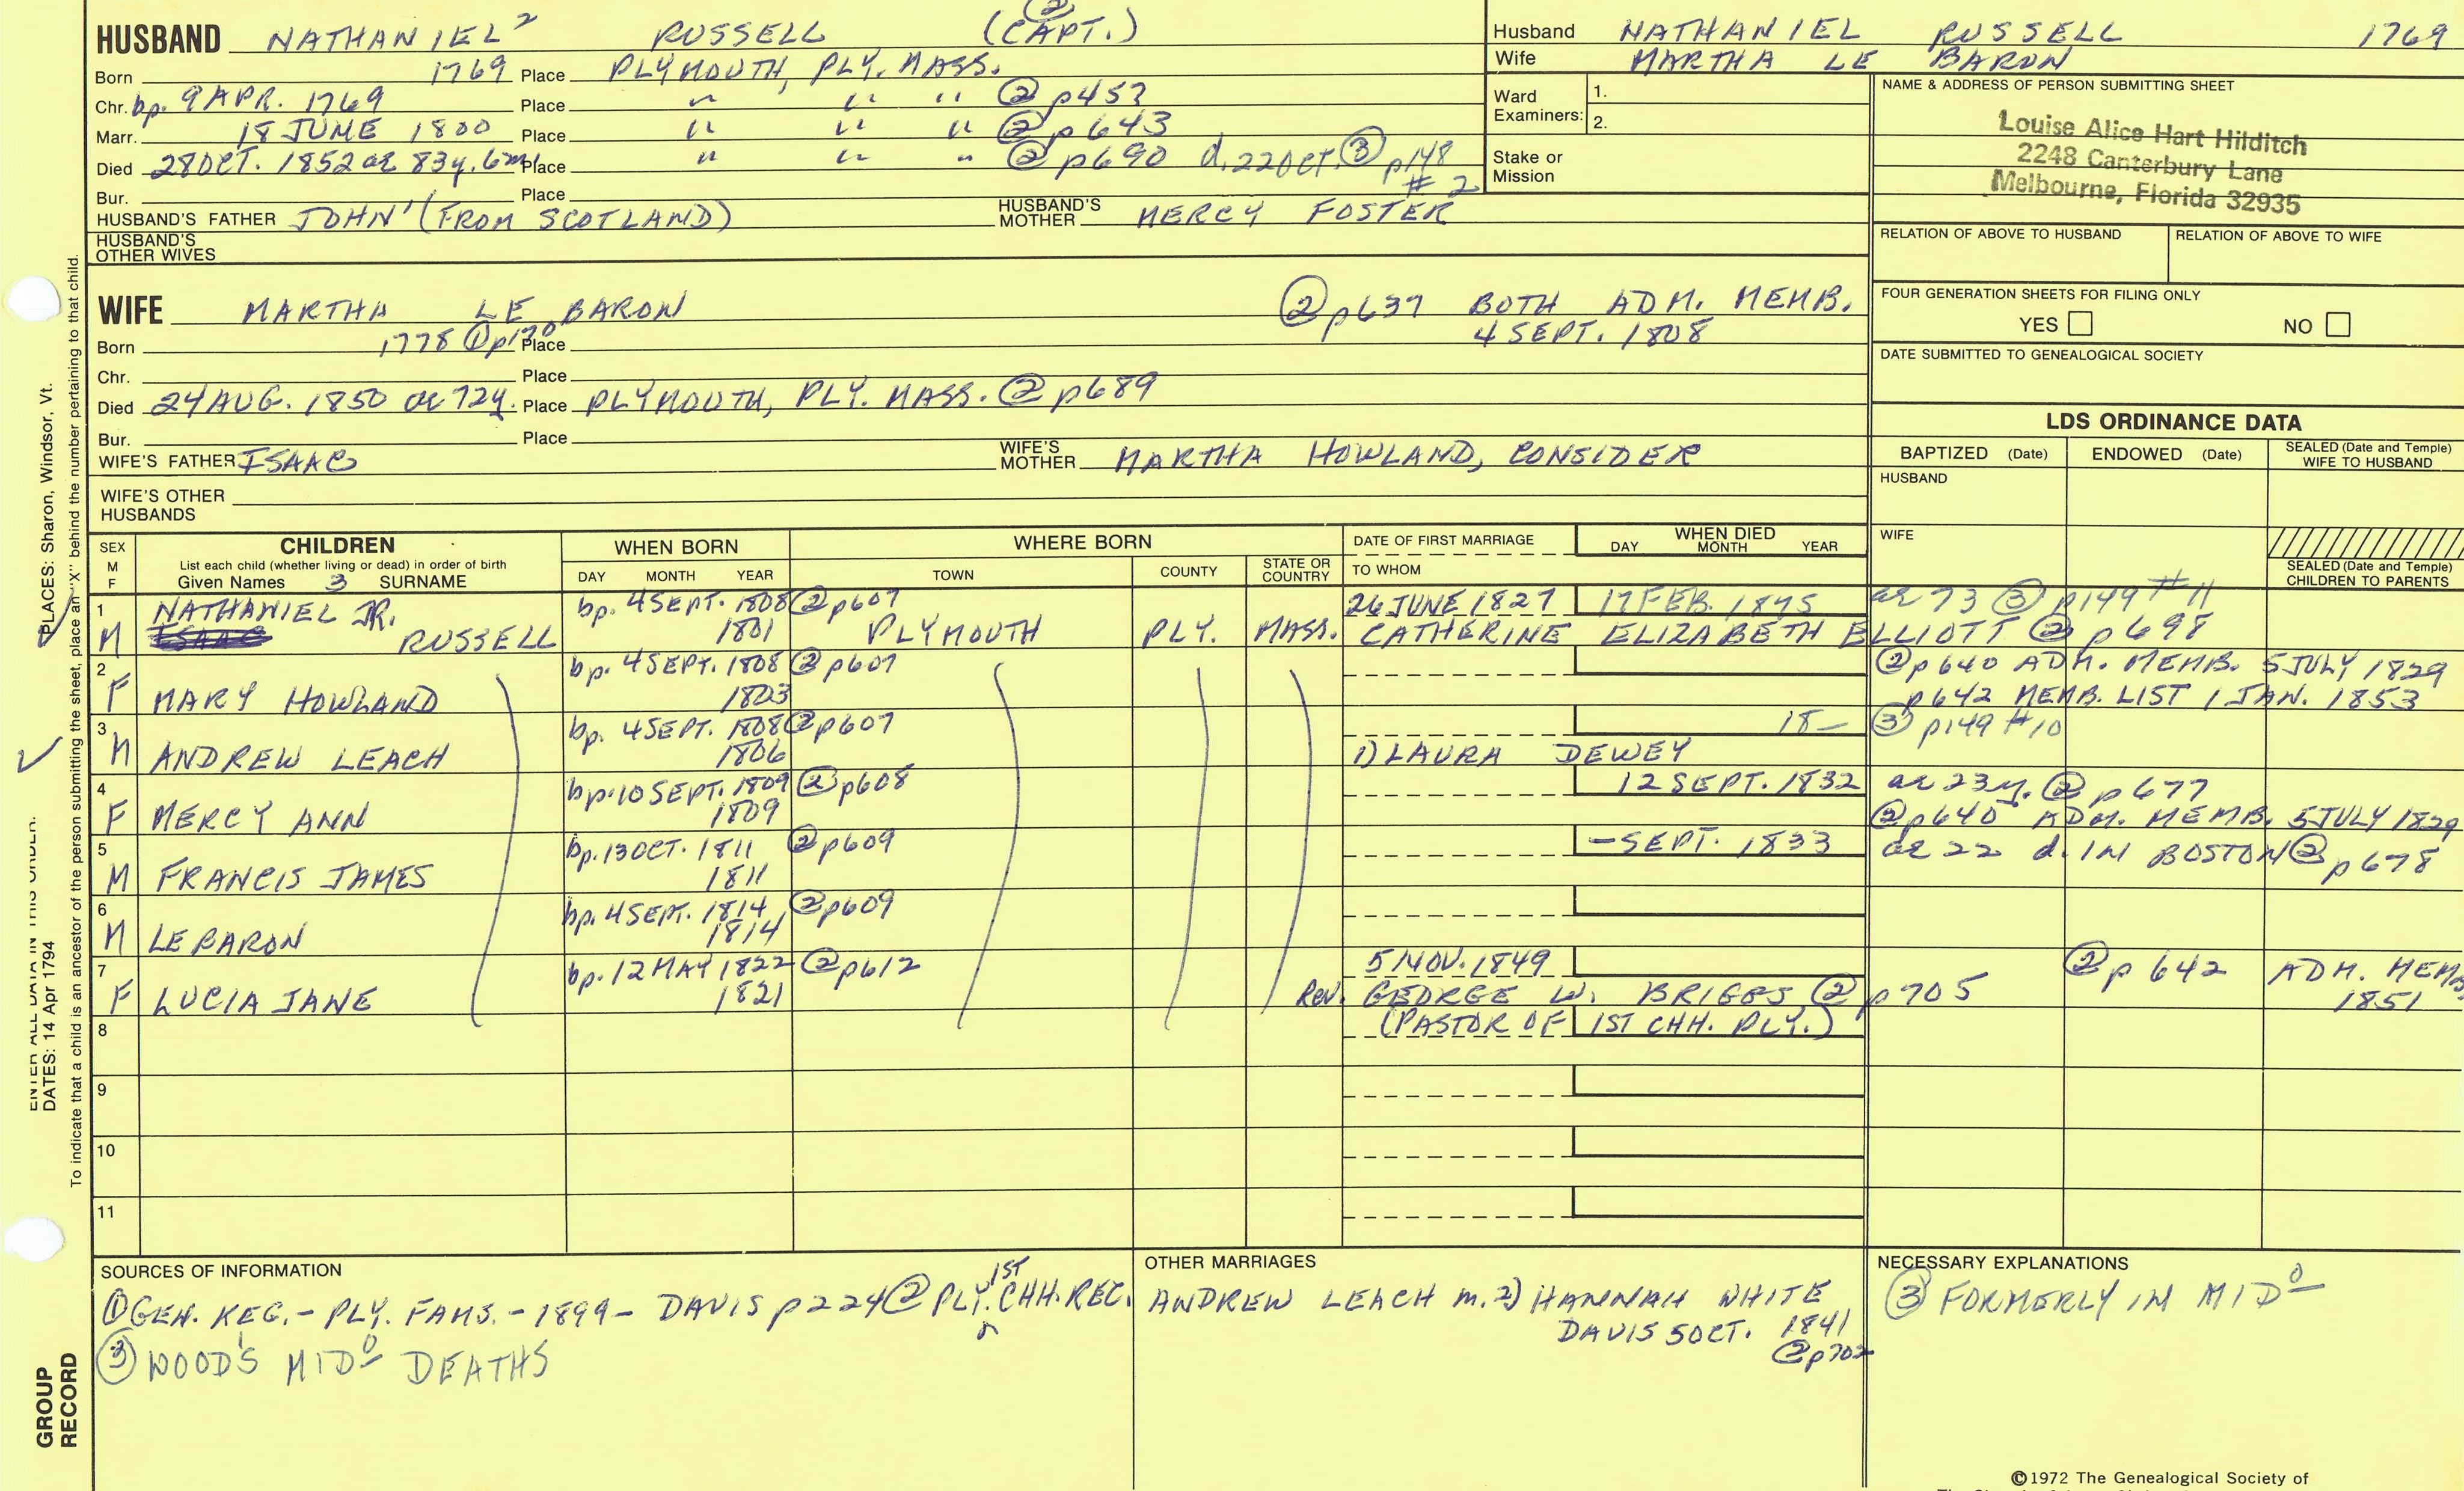 HUSBAND NATHANIEL² RUSSELL (CAPT.) ②
Born 1769 Place PLYMOUTH, PLY. MASS.
Chr. bp. 9 APR. 1769 Place " " " ② p453
Marr. 18 JUNE 1800 Place " " " ② p643
Died 28 OCT. 1852 ae 83y. 6m Place " " " ② p690 d. 22 OCT. ③ p148 # 2
Bur. Place
HUSBAND'S FATHER JOHN' (FROM SCOTLAND) HUSBAND'S MOTHER MERCY FOSTER
HUSBAND'S OTHER WIVES
Husband NATHANIEL RUSSELL 1769
Wife MARTHA LE BARON
Ward Examiners: 1.
2.
Stake or Mission
NAME & ADDRESS OF PERSON SUBMITTING SHEET
Louise Alice Hart Hilditch
2248 Canterbury Lane
Melbourne, Florida 32935
RELATION OF ABOVE TO HUSBAND RELATION OF ABOVE TO WIFE
FOUR GENERATION SHEETS FOR FILING ONLY
YES NO
DATE SUBMITTED TO GENEALOGICAL SOCIETY
WIFE MARTHA LE BARON ② p637 BOTH ADM. MEMB.
4 SEPT. 1808
Born 1778 ① p170 Place
Chr. Place
Died 24 AUG. 1850 ae 72y. Place PLYMOUTH, PLY. MASS. ② p689
Bur. Place
WIFE'S FATHER ISAAC WIFE'S MOTHER MARTHA HOWLAND, CONSIDER
WIFE'S OTHER HUSBANDS
LDS ORDINANCE DATA
BAPTIZED (Date) ENDOWED (Date) SEALED (Date and Temple) WIFE TO HUSBAND
HUSBAND
WIFE
SEALED (Date and Temple) CHILDREN TO PARENTS
SEX M F
CHILDREN
List each child (whether living or dead) in order of birth
Given Names 3 SURNAME
WHEN BORN
DAY MONTH YEAR
WHERE BORN
TOWN COUNTY STATE OR COUNTRY
DATE OF FIRST MARRIAGE
TO WHOM
WHEN DIED
DAY MONTH YEAR
1 NATHANIEL JR. bp. 4 SEPT. 1808 ② p607 26 JUNE 1827 17 FEB. 1875 ae 73 ③ p149 # 11
M ISAAC RUSSELL 1801 PLYMOUTH PLY. MASS. CATHERINE ELIZABETH ELLIOTT ② p698
2 bp. 4 SEPT. 1808 ② p607 ② p640 ADM. MEMB. 5 JULY 1829
F MARY HOWLAND 1803 p642 MEMB. LIST 1 JAN. 1853
3 bp. 4 SEPT. 1808 ② p607 18— ③ p149 # 10
M ANDREW LEACH 1806 1) LAURA DEWEY
4 bp. 10 SEPT. 1809 ② p608 12 SEPT. 1832 ae 23y. ② p677
F MERCY ANN 1809 ② p640 ADM. MEMB. 5 JULY 1829
5 bp. 13 OCT. 1811 ② p609 — SEPT. 1833 ae 22 d. IN BOSTON ② p678
M FRANCIS JAMES 1811
6 bp. 4 SEPT. 1814 ② p609
M LE BARON 1814
7 bp. 12 MAY 1822 ② p612 5 NOV. 1849 ② p642 ADM. MEMB
F LUCIA JANE 1821 Rev. GEORGE W. BRIGGS ② p705 1851
8 (PASTOR OF 1ST CHH. PLY.)
9
10
11
SOURCES OF INFORMATION
① GEN. REG. - PLY. FAMS. - 1899 - DAVIS p224 ② PLY. 1ST CHH. REC.
③ WOOD'S MIDº DEATHS
OTHER MARRIAGES
ANDREW LEACH m. 2) HANNAH WHITE
DAVIS 5 OCT. 1841
② p702
NECESSARY EXPLANATIONS
③ FORMERLY IN MIDº
©1972 The Genealogical Society of
PLACES: Sharon, Windsor, Vt.
ENTER ALL DATA IN THIS ORDER:
DATES: 14 Apr 1794
To indicate that a child is an ancestor of the person submitting the sheet, place an "X" behind the number pertaining to that child.
GROUP
RECORD